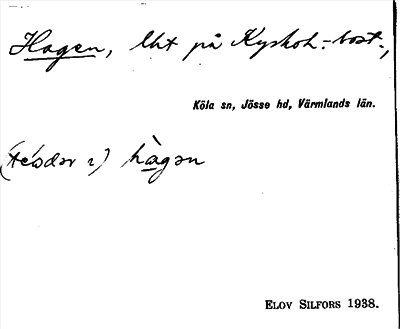 Hagen, lht på Kyrkoh.-bost.,
Köla sn, Jösse hd, Värmlands län.
hàgən
ELOV SILFORS 1938.